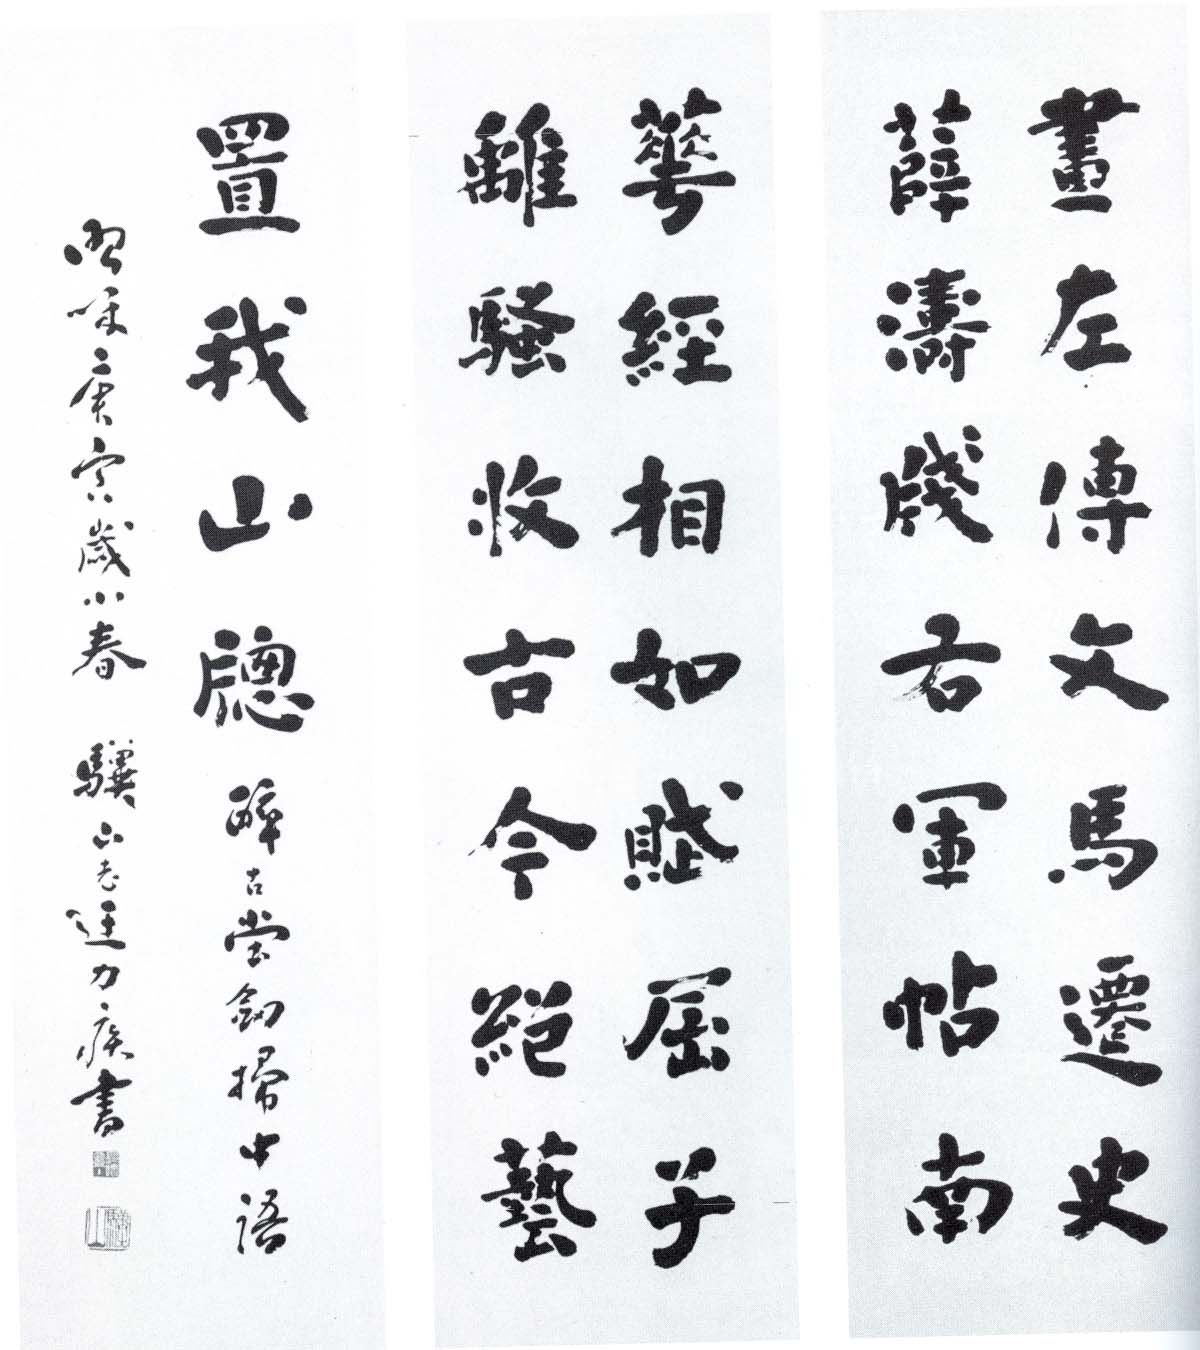 畫左傳文馬遷史
薛濤牋右軍帖南
華經相如賦屈子
離騷收古今絕藝
置我山牕 醉古堂劍掃中語
庚寅歲小春 驥山老力疾書